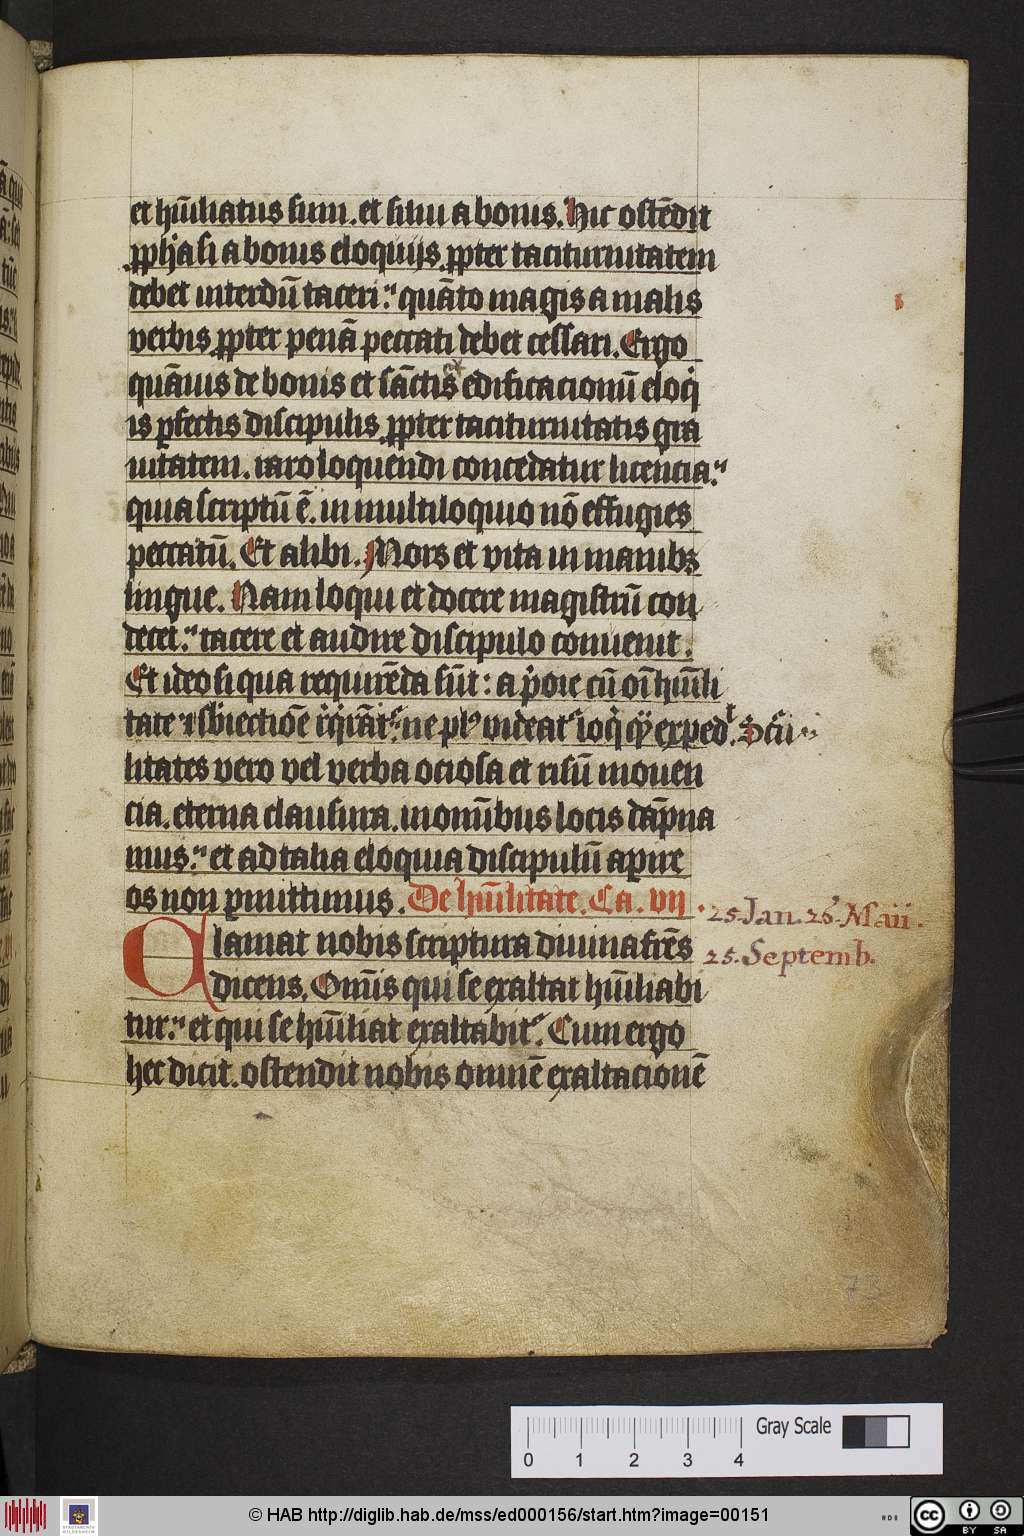 et hūiliatus sum. et silui a bonis. Hic ostēdit
ꝓpħa si a bonis eloquijs ꝓpter taciturnitatem
debet interdū taceri: quāto magis a malis
verbis ꝓpter penā peccati debet cessari. Ergo
quāuis de bonis et sāctis edificacionū eloq̇
is ꝑfectis discipulis ꝓpter taciturnitatis gra
uitatem. raro loquendi concedatur licencia:
quia scriptū ē. in multiloquio nō effugies
peccatū. Et alibi. Mors et vita in manibꝫ
lingue. Nam loqui et docere magistrū con
decet: tacere et audire discipulo conuenit.
Et ideo si qua requirēda sūt: a p̓ore cū oī hūili
tate ⁊ sb̓iectiōe
litates vero vel verba ociosa et risū mouen
cia. eterna clausura. in om̄ibus locis dāpna
mus: et ad talia eloquia discipulū aꝑire
os non ꝑmittimus. De hūilitate. Ca. vij.
25. Jan. 26. Maii.
Clamat nobis scriptura diuina fr̄es
25. Septemb.
dicens. Om̄is qui se exaltat hūiliabi
tur: et qui se hūiliat exaltabit᷑. Cum ergo
hec dicit. ostendit nobis omnē exaltacionē
73
0 1 2 3 4 Gray Scale
© HAB http://diglib.hab.de/mss/ed000156/start.htm?image=00151
cc BY SA